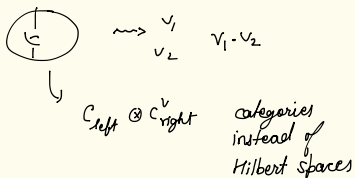 C
V₁
V₂
V₁ - V₂
C_left ⊗ C^V_right
categories
instead of
Hilbert spaces